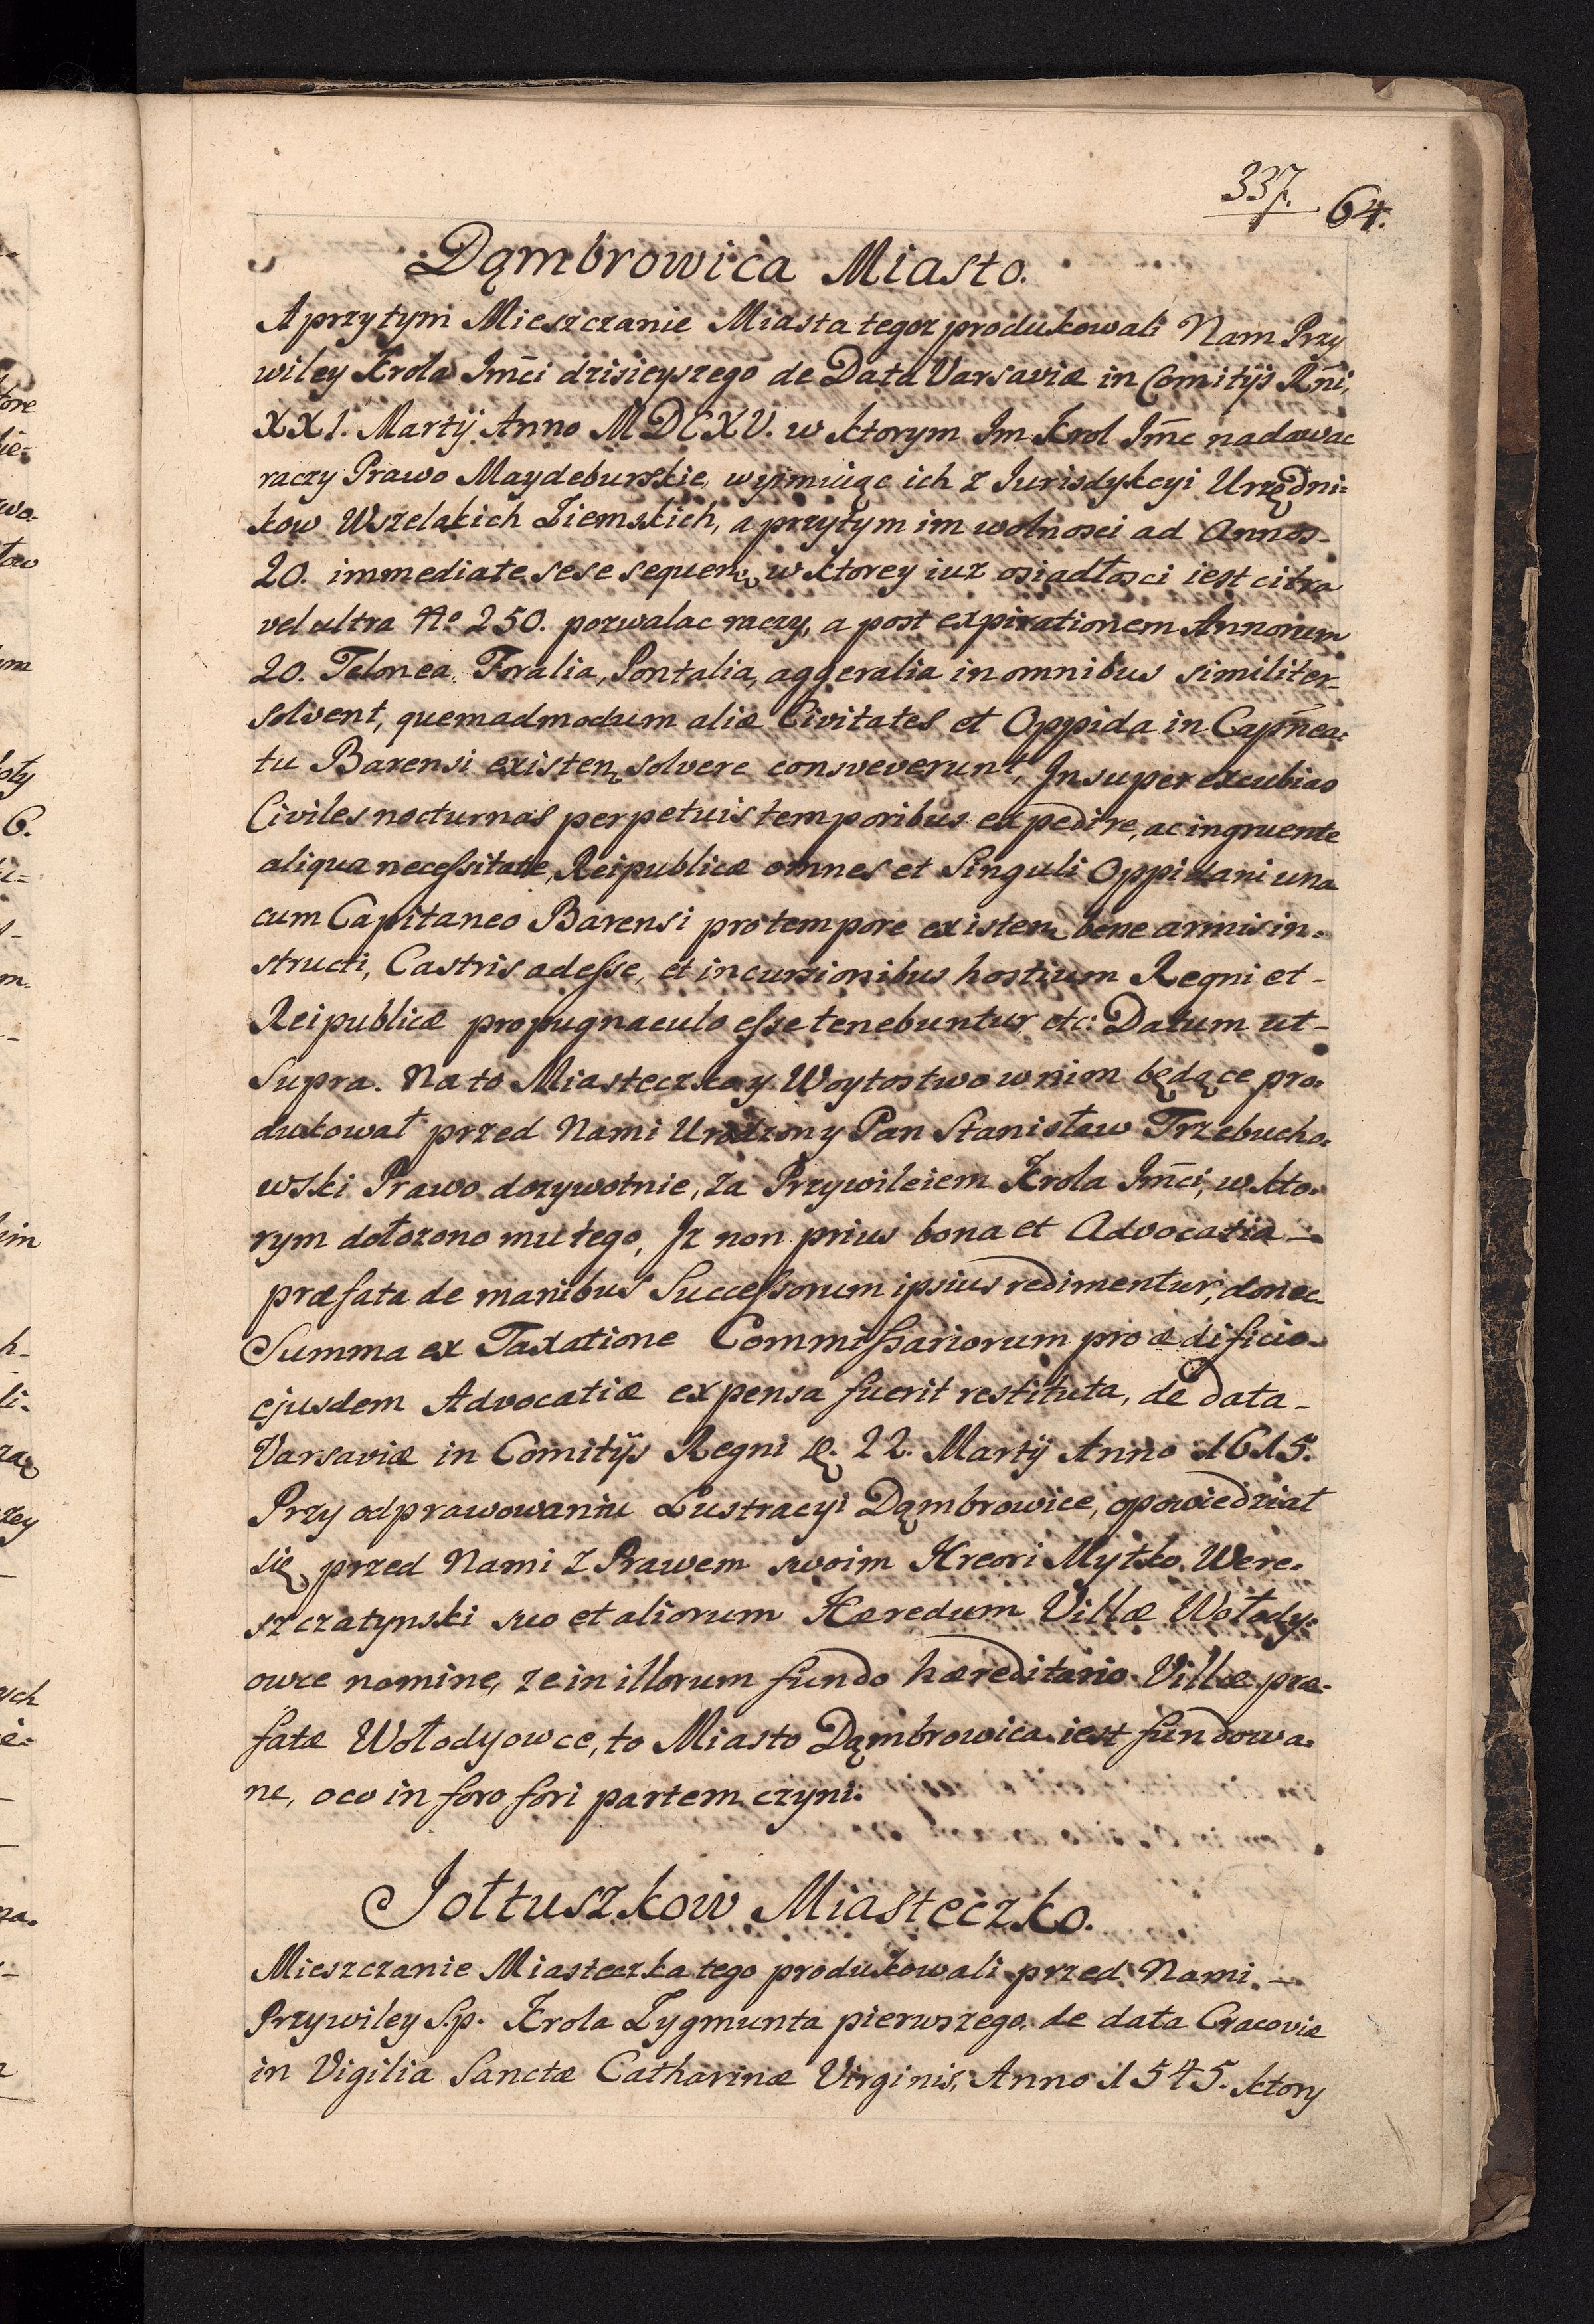 337. 64.
Dąmbrowica Miasto.
A przytym Mieszczanie Miasta tegoz produkowali Nam Przy
wiley Krola Jm̃ci dzisieyszego de Data Varsaviæ in Comitijs Rñi,
XXI. Martij Anno MDCXV. w ktorym Jm Krol Jm̃c nadawac
raczy Prawo Maydeburskie, wyimuiąc ich z Jurisdykcyi Urzędni=
kow Wszelakich Ziemskich, a przytym im wolnosci ad Annos-
20. immediate sese sequen, w ktorey iuz osiadłosci iest citra
vel ultra No 250. pozwalac raczy, a post expirationem Annorum
20. Telonea, Foralia, Pontalia, aggeralia in omnibus similiter-
solvent, quemadmodum aliæ Civitates et Oppida in Capñea=
tu Barensi existen, solvere consveverunt, Insuper excubias
Civiles nocturnas perpetuis temporibus expedire, ac ingruente
aliqua necessitate, Reipublicæ omnes et Singuli Oppidani una
cum Capitaneo Barensi pro tempore existen, bene armis in=
structi, Castris adesse, et incursionibus hostium Regni et-
Reipublicæ propugnaculo esse tenebuntur etc: Datum ut-
Supra. Na to Miasteczko y Woytostwo w nim będące pro=
dukował przed Nami Urodzony Pan Stanisław Trzebucho=
wski Prawo dozywotnie, za Przywileiem Krola Jm̃ci, w kto=
rym dołozono mu tego, Jz non prius bona et Advocatia -
præfata de manibus Successorum ipsius redimentur, donec
Summa ex Taxatione Commissariorum pro ædificio
ejusdem Advocatiæ expensa fuerit restituta, de data-
Varsaviæ in Comitijs Regni D. 22. Martij Anno 1615.
Przy odprawowaniu Lustracyi Dąmbrowice, opowiedział
się przed Nami z Prawem swoim Hreori Mytko Were=
szczatynski suo et aliorum Hæredum Villæ Wołody=
owce nomine, ze in illorum fundo hæreditario Villæ præ=
fatæ Wołodyowce, to Miasto Dąmbrowica iest fundowa=
ne, oco in foro fori partem czyni.
Jołtuszkow Miasteczko.
Mieszczanie Miasteczka tego produkowali przed Nami -
Przywiley S.p. Krola Zygmunta pierwszego de data Cracoviæ
in Vigilia Sanctæ Catharinæ Virginis, Anno 1545. ktory